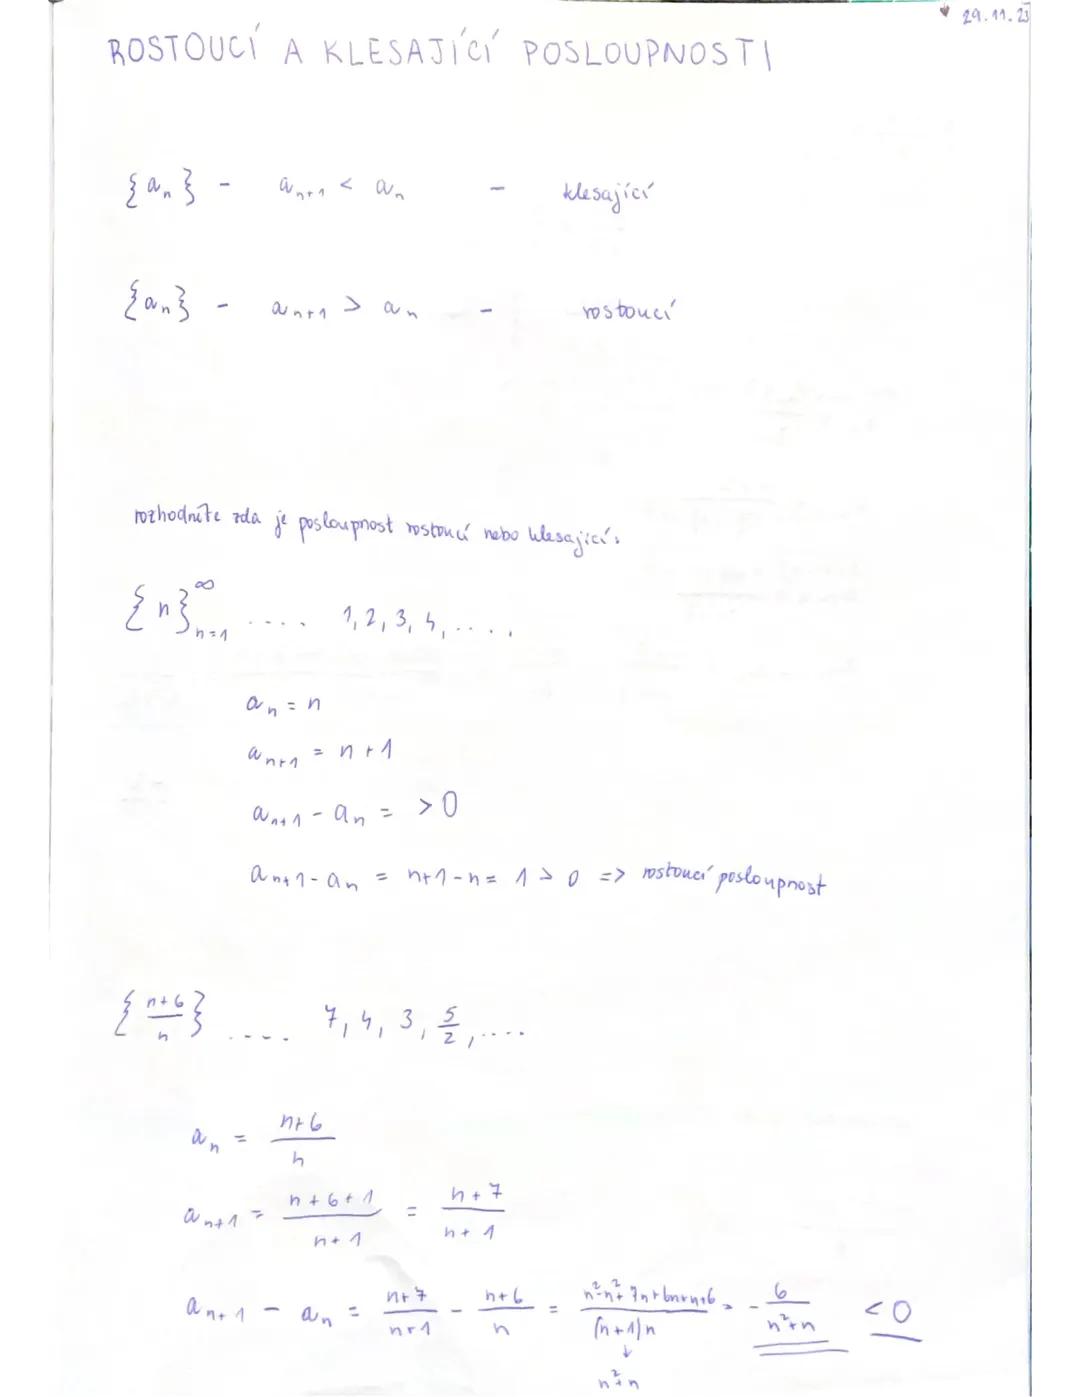 29.11.23
ROSTOUCÍ A KLESAJÍCÍ POSLOUPNOSTI
{aₙ} - aₙ₊₁ < aₙ - klesající
{aₙ} - aₙ₊₁ > aₙ - rostoucí
rozhodněte zda je posloupnost rostoucí nebo klesající:
{n}^∞_{n=1} .... 1, 2, 3, 4, ....
aₙ = n
aₙ₊₁ = n + 1
aₙ₊₁ - aₙ = > 0
aₙ₊₁ - aₙ = n+1-n = 1 > 0 => rostoucí posloupnost
{(n+6)/n} .... 7, 4, 3, 5/2, ....
aₙ = (n+6)/n
aₙ₊₁ = (n+6+1)/(n+1) = (n+7)/(n+1)
aₙ₊₁ - aₙ = (n+7)/(n+1) - (n+6)/n = /((n+1)n) = - 6/(n²+n) < 0
↓
n²+n